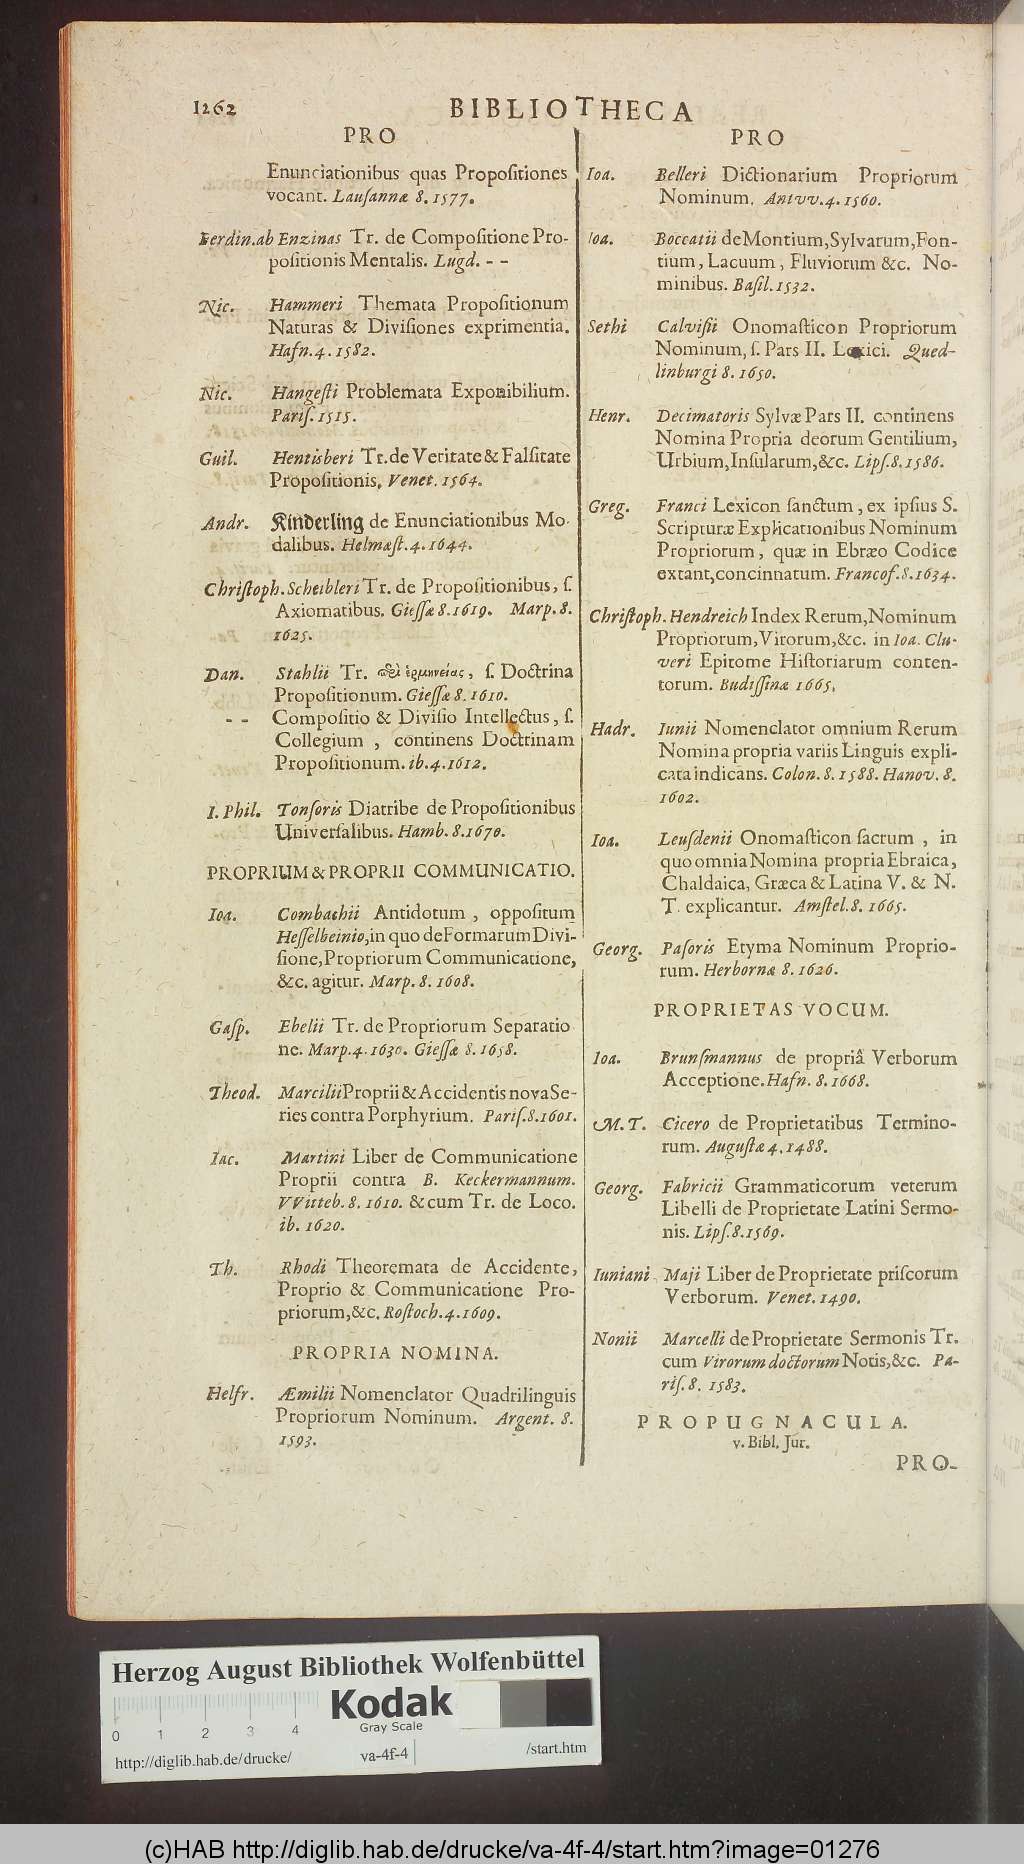 1262
BIBLIOTHECA
PRO
Enunciationibus quas Propositiones
vocant. Lausannæ 8. 1577.
Ferdin. ab Enzinas Tr. de Compositione Pro-
positionis Mentalis. Lugd. - -
Nic. Hammeri Themata Propositionum
Naturas & Divisiones exprimentia.
Hafn. 4. 1582.
Nic. Hangesti Problemata Exponibilium.
Paris. 1515.
Guil. Hentisberi Tr. de Veritate & Falsitate
Propositionis, Venet. 1564.
Andr. Kinderling de Enunciationibus Mo-
dalibus. Helmæst. 4. 1644.
Christoph. Scheibleri Tr. de Propositionibus, s.
Axiomatibus. Giessæ 8. 1619. Marp. 8.
1625.
Dan. Stahlii Tr. περὶ ἑρμηνείας, s. Doctrina
Propositionum. Giessæ 8. 1610.
- - Compositio & Divisio Intellectus, s.
Collegium, continens Doctrinam
Propositionum. ib. 4. 1612.
I. Phil. Tonsoris Diatribe de Propositionibus
Universalibus. Hamb. 8. 1670.
PROPRIUM & PROPRII COMMUNICATIO.
Ioa. Combachii Antidotum, oppositum
Hesselbeinio, in quo de Formarum Divi-
sione, Propriorum Communicatione,
&c. agitur. Marp. 8. 1608.
Gasp. Ebelii Tr. de Propriorum Separatio
ne. Marp. 4. 1630. Giessæ 8. 1658.
Theod. Marcilii Proprii & Accidentis nova Se-
ries contra Porphyrium. Paris. 8. 1601.
Iac. Martini Liber de Communicatione
Proprii contra B. Keckermannum.
VVitteb. 8. 1610. & cum Tr. de Loco.
ib. 1620.
Th. Rhodi Theoremata de Accidente,
Proprio & Communicatione Pro-
priorum, &c. Rostoch. 4. 1609.
PROPRIA NOMINA.
Helfr. Æmilii Nomenclator Quadrilinguis
Propriorum Nominum. Argent. 8.
1593.
PRO
Ioa. Belleri Dictionarium Propriorum
Nominum. Antvv. 4. 1560.
Ioa. Boccatii de Montium, Sylvarum, Fon-
tium, Lacuum, Fluviorum &c. No-
minibus. Basil. 1532.
Sethi Calvisii Onomasticon Propriorum
Nominum, s. Pars II. Lexici. Qued-
linburgi 8. 1650.
Henr. Decimatoris Sylvæ Pars II. continens
Nomina Propria deorum Gentilium,
Urbium, Insularum, &c. Lips. 8. 1586.
Greg. Franci Lexicon sanctum, ex ipsius S.
Scripturæ Explicationibus Nominum
Propriorum, quæ in Ebræo Codice
extant, concinnatum. Francof. 8. 1634.
Christoph. Hendreich Index Rerum, Nominum
Propriorum, Virorum, &c. in Ioa. Clu-
veri Epitome Historiarum conten-
torum. Budissinæ 1665.
Hadr. Iunii Nomenclator omnium Rerum
Nomina propria variis Linguis expli-
cata indicans. Colon. 8. 1588. Hanov. 8.
1602.
Ioa. Leusdenii Onomasticon sacrum, in
quo omnia Nomina propria Ebraica,
Chaldaica, Græca & Latina V. & N.
T. explicantur. Amstel. 8. 1665.
Georg. Pasoris Etyma Nominum Proprio-
rum. Herbornæ 8. 1626.
PROPRIETAS VOCUM.
Ioa. Brunsmannus de propriâ Verborum
Acceptione. Hafn. 8. 1668.
M. T. Cicero de Proprietatibus Termino-
rum. Augustæ 4. 1488.
Georg. Fabricii Grammaticorum veterum
Libelli de Proprietate Latini Sermo-
nis. Lips. 8. 1569.
Iuniani Maji Liber de Proprietate priscorum
Verborum. Venet. 1490.
Nonii Marcelli de Proprietate Sermonis Tr.
cum Virorum doctorum Notis, &c. Pa-
ris. 8. 1583.
PROPUGNACULA.
v. Bibl. Jur.
PRO-
Herzog August Bibliothek Wolfenbüttel
Kodak
Gray Scale
0 1 2 3 4
http://diglib.hab.de/drucke/ va-4f-4 /start.htm
(c)HAB http://diglib.hab.de/drucke/va-4f-4/start.htm?image=01276